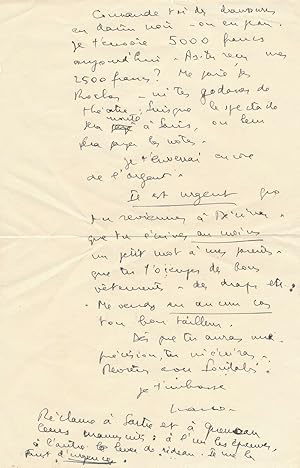 Commande toi des chaussures
en daim noir - ou en peau.
Je t'envoie 5000 francs
aujourd'hui - As-tu reçu mes
2500 francs? Ne paie pas
Rochas - ni tes godasses de
théâtre: lorsque le spectacle
sera monté à Paris, on leur
fera payer les notes.
Je t'enverrai encore
de l'argent.
Il est urgent que
tu reviennes à
que tu écrives au moins
un petit mot à mes parents -
que tu t'occupes de tous
vêtements - des draps etc.
Ne vends en aucun cas
ton bon tailleur.
Dès que tu auras une
précision, tu m'écriras -
avec
je t'embrasse
Réclame à Sartre et à Queneau
leurs manuscrits: à l'un les épreuves,
à l'autre le lever de rideau. Je ne
d'urgence.